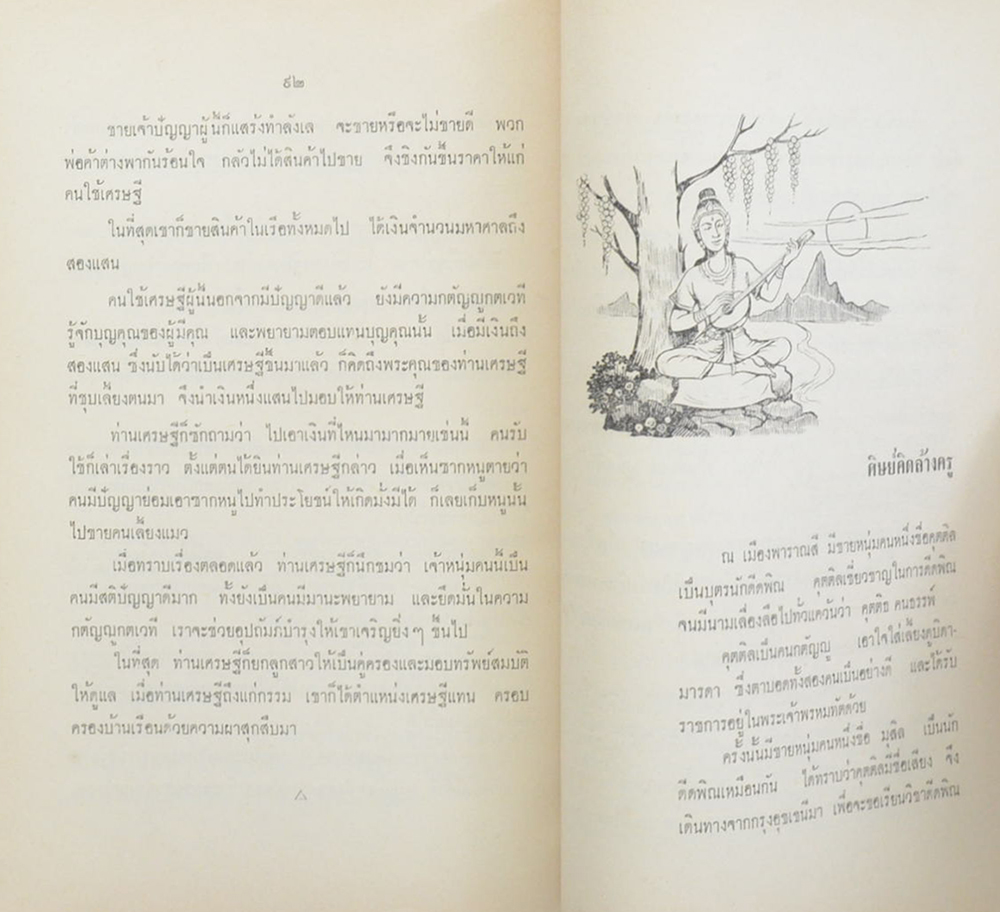 ๙๒
ชายเจ้าปัญญาผู้นี้ก็แสร้งทำลังเล จะขายหรือจะไม่ขายดี พวก
พ่อค้าต่างพากันร้อนใจ กลัวไม่ได้สินค้าไปขาย จึงชิงกันขึ้นราคาให้แก่
คนใช้เศรษฐี
ในที่สุดเขาก็ขายสินค้าในเรือทั้งหมดไป ได้เงินจำนวนมหาศาลถึง
สองแสน
คนใช้เศรษฐีผู้นั้นนอกจากมีปัญญาดีแล้ว ยังมีความกตัญญูกตเวที
รู้จักบุญคุณของผู้มีคุณ และพยายามตอบแทนบุญคุณนั้น เมื่อมีเงินถึง
สองแสน ซึ่งนับได้ว่าเป็นเศรษฐีขึ้นมาแล้ว ก็คิดถึงพระคุณของท่านเศรษฐี
ที่ชุบเลี้ยงตนมา จึงนำเงินหนึ่งแสนไปมอบให้ท่านเศรษฐี
ท่านเศรษฐีก็ซักถามว่า ไปเอาเงินที่ไหนมามากมายเช่นนี้ คนรับ
ใช้ก็เล่าเรื่องราว ตั้งแต่ตนได้ยินท่านเศรษฐีกล่าว เมื่อเห็นซากหนูตายว่า
คนมีปัญญาย่อมเอาซากหนูไปทำประโยชน์ให้เกิดมั่งมีได้ ก็เลยเก็บหนูนั้น
ไปขายคนเลี้ยงแมว
เมื่อทราบเรื่องตลอดแล้ว ท่านเศรษฐีก็นึกชมว่า เจ้าหนุ่มคนนี้เป็น
คนมีสติปัญญาดีมาก ทั้งยังเป็นคนมีมานะพยายาม และยึดมั่นในความ
กตัญญูกตเวที เราจะช่วยอุปถัมภ์บำรุงให้เขาเจริญยิ่งๆ ขึ้นไป
ในที่สุด ท่านเศรษฐีก็ยกลูกสาวให้เป็นคู่ครองและมอบทรัพย์สมบัติ
ให้ดูแล เมื่อท่านเศรษฐีถึงแก่กรรม เขาก็ได้ตำแหน่งเศรษฐีแทน ครอบ
ครองบ้านเรือนด้วยความผาสุกสืบมา
ศิษย์คิดล้างครู
ณ เมืองพาราณสี มีชายหนุ่มคนหนึ่งชื่อคุตติล
เป็นบุตรนักดีดพิณ คุตติลเชี่ยวชาญในการดีดพิณ
จนมีนามเลื่องลือไปทั่วแคว้นว่า คุตติธ คนธรรพ์
คุตติลเป็นคนกตัญญู เอาใจใส่เลี้ยงดูบิดา-
มารดา ซึ่งตาบอดทั้งสองคนเป็นอย่างดี และได้รับ
ราชการอยู่ในพระเจ้าพรหมทัตด้วย
ครั้งนั้นมีชายหนุ่มคนหนึ่งชื่อ มุสิล เป็นนัก
ดีดพิณเหมือนกัน ได้ทราบว่าคุตติลมีชื่อเสียง จึง
เดินทางจากกรุงอุชเชนีมา เพื่อจะขอเรียนวิชาดีดพิณ